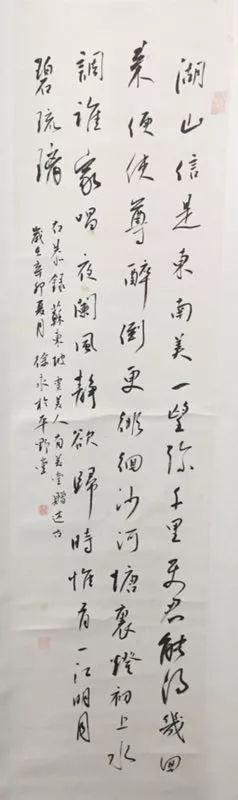 湖山信是東南美一望弥千里史君能得幾回
来便使尊醉倒更徘徊沙河塘裏燈初上水
調誰家唱夜闌風静欲歸時惟有一江明月
碧琉璃
右恭録蘇東坡虞美人有美堂贈述古
歲在辛卯夏月徐永於平野堂